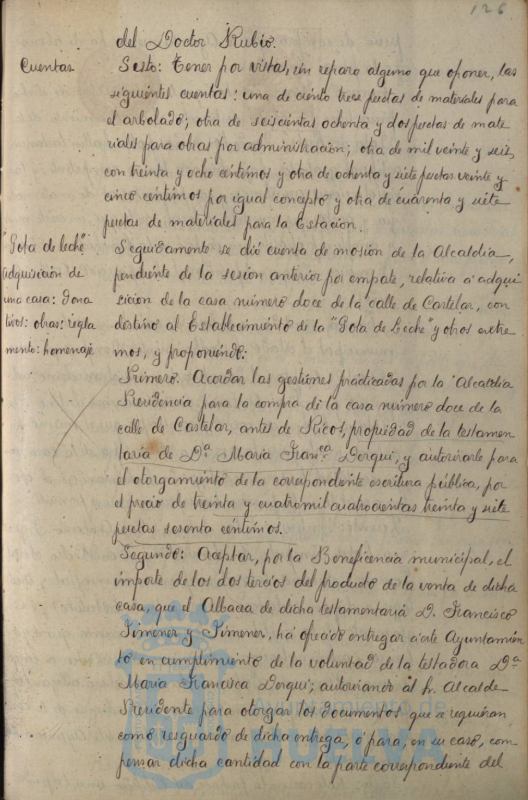 126
del Doctor Rubio.
Cuentas
Sesto: Tener por vistas, sin reparo alguno que oponer, las
siguientes cuentas: una de ciento trece pesetas de materiales para
el arbolado; otra de seiscientas ochenta y dos pesetas de mate
riales para obras por administración; otra de mil veinte y seis,
con treinta y ocho centimos y otra de ochenta y siete pesetas veinte y
cinco centimos por igual concepto y otra de cuarenta y siete
pesetas de materiales para la Estación.
"Gota de leche"
adquisición de
una casa: dona
tivos: obras: regla
mento: homenaje
Seguidamente se dió cuenta de mosión de la Alcaldia,
pendiente de la sesion anterior por empate, relativa á adqui
sicion de la casa número doce de la calle de Castelar, con
destino al Establecimiento de la "Gota de Leche" y otros extre
mos, y proponiendo:
Primero: Acordar las gestiones prácticadas por la Alcaldia
Presidencia para la compra de la casa número doce de la
calle de Castelar, antes de Ricos, propiedad de la testamen
taria de Dª. María Franca. Dorqui, y autorizarle para
el otorgamiento de la correspondiente escritura pública, por
el precio de treinta y cuatromil cuatrocientas treinta y siete
pesetas sesenta céntimos.
Segundo: Aceptar, por la Beneficencia municipal, el
importe de los dos tercios del producto de la venta de dicha
casa, que el Albacea de dicha testamentaria D. Francisco
Jimenez y Jimenez, há ofrecido entregar á este Ayuntamien
to en cumplimiento de la voluntad de la testadora Dª.
María Francisca Dorqui; autorizando al Sr. Alcalde
Presidente para otorgar los documentos que se requieran
como resguardo de dicha entrega, ó para, en su caso, com
pensar dicha cantidad con la parte correspondiente del
Ayuntamiento de
HUELVA